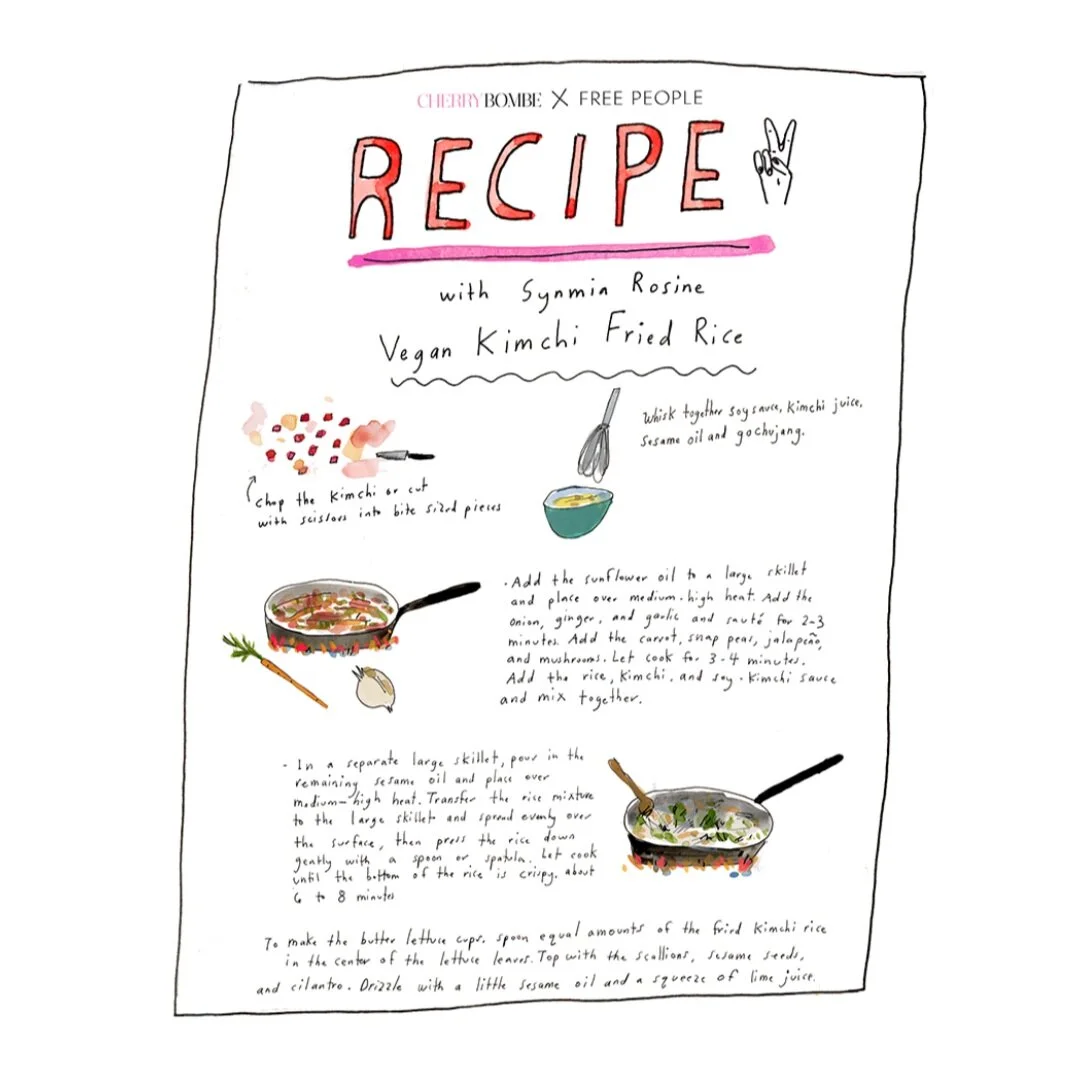 CHERRYBOMBE X FREE PEOPLE
RECIPE
with Synmin Rosine
Vegan Kimchi Fried Rice
Chop the Kimchi or cut
with scissors into bite sized pieces
Whisk together soy sauce, Kimchi juice,
sesame oil and gochujang.
· Add the sunflower oil to a large skillet
and place over medium-high heat. Add the
onion, ginger, and garlic and sauté for 2-3
minutes. Add the carrot, snap peas, jalapeño,
and mushrooms. Let cook for 3-4 minutes.
Add the rice, Kimchi, and soy-Kimchi sauce
and mix together.
- In a separate large skillet, pour in the
remaining sesame oil and place over
medium-high heat. Transfer the rice mixture
to the large skillet and spread evenly over
the surface, then press the rice down
gently with a spoon or spatula. Let cook
until the bottom of the rice is crispy, about
6 to 8 minutes
To make the butter lettuce cups, spoon equal amounts of the fried Kimchi rice
in the center of the lettuce leaves. Top with the scallions, sesame seeds,
and cilantro. Drizzle with a little sesame oil and a squeeze of lime juice.